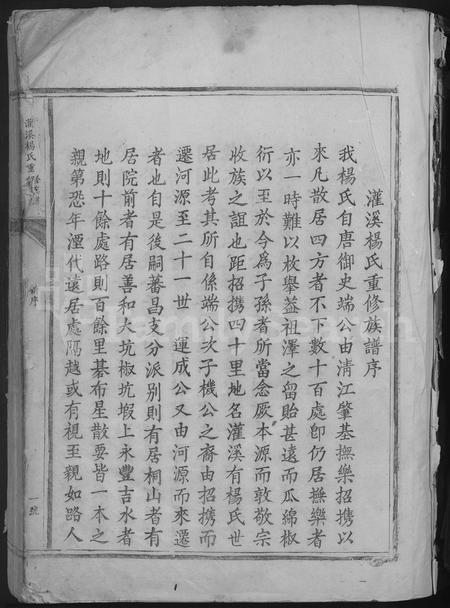 灌溪楊氏重修族譜序
我楊氏自唐御史端公由清江肇基撫樂招携以
來凡散居四方者不下數十百處卽仍居撫樂者
亦一時難以枚舉葢祖澤之留貽甚遠而瓜綿椒
衍以至於今爲子孫者所當念厥本源而敦敬宗
收族之誼也距招携四十里地名灌溪有楊氏世
居此考其所自係端公次子機公之裔由招携而
遷河源至二十一世 運成公又由河源而來遷
者也自是後嗣蕃昌支分派別則有居桐山者有
居院前者有居善和大坑椒坑塅上永豐吉水者
地則十餘處路則百餘里碁布星散要皆一本之
親第恐年湮代遠居處隔越或有視至親如路人
灌溪楊氏重
序
一號